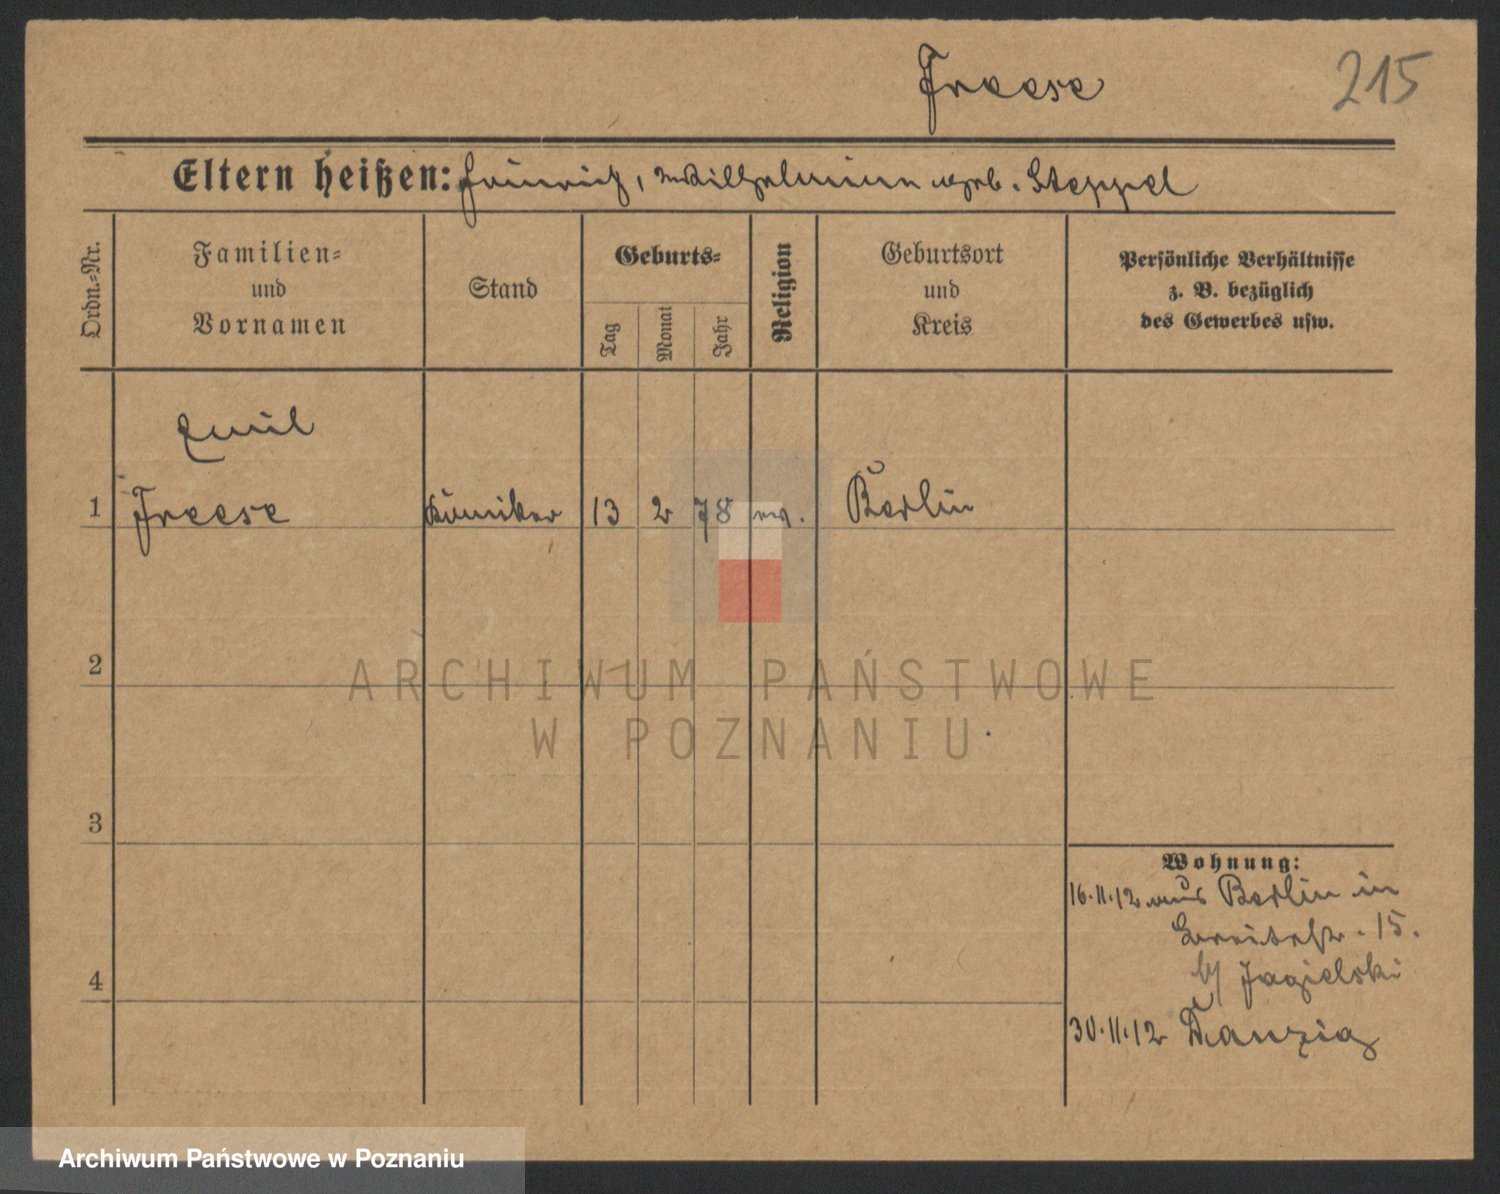 Freese
215
Eltern heißen: Heinrich, Wilhelmine geb. Steppel
Ordn.-Nr.
Familien-
und
Vornamen
Stand
Geburts-
Tag
Monat
Jahr
Religion
Geburtsort
und
Kreis
Persönliche Verhältnisse
z. B. bezüglich
des Gewerbes usw.
Emil
1 Freese 13 2 78 ev. Berlin
2
ARCHIWUM PAŃSTWOWE
W POZNANIU
3
Wohnung:
16.11.12 aus Berlin in
Breitestr. 15.
b/ Jagielski
4
30.11.12 Danzig
Archiwum Państwowe w Poznaniu